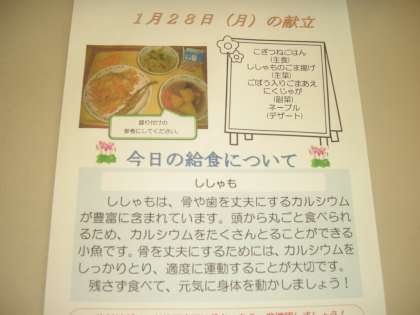 1月28日(月)の献立
こぎつねごはん
(主食)
ししゃものごま揚げ
(主菜)
ごぼう入りごまあえ
にくじゃが
(副菜)
ネーブル
(デザート)
盛り付けの
参考にしてください。
今日の給食について
ししゃも
ししゃもは、骨や歯を丈夫にするカルシウム
が豊富に含まれています。頭から丸ごと食べられ
るため、カルシウムをたくさんとることができる
小魚です。骨を丈夫にするためには、カルシウムを
しっかりとり、適度に運動することが大切です。
残さず食べて、元気に身体を動かしましょう!